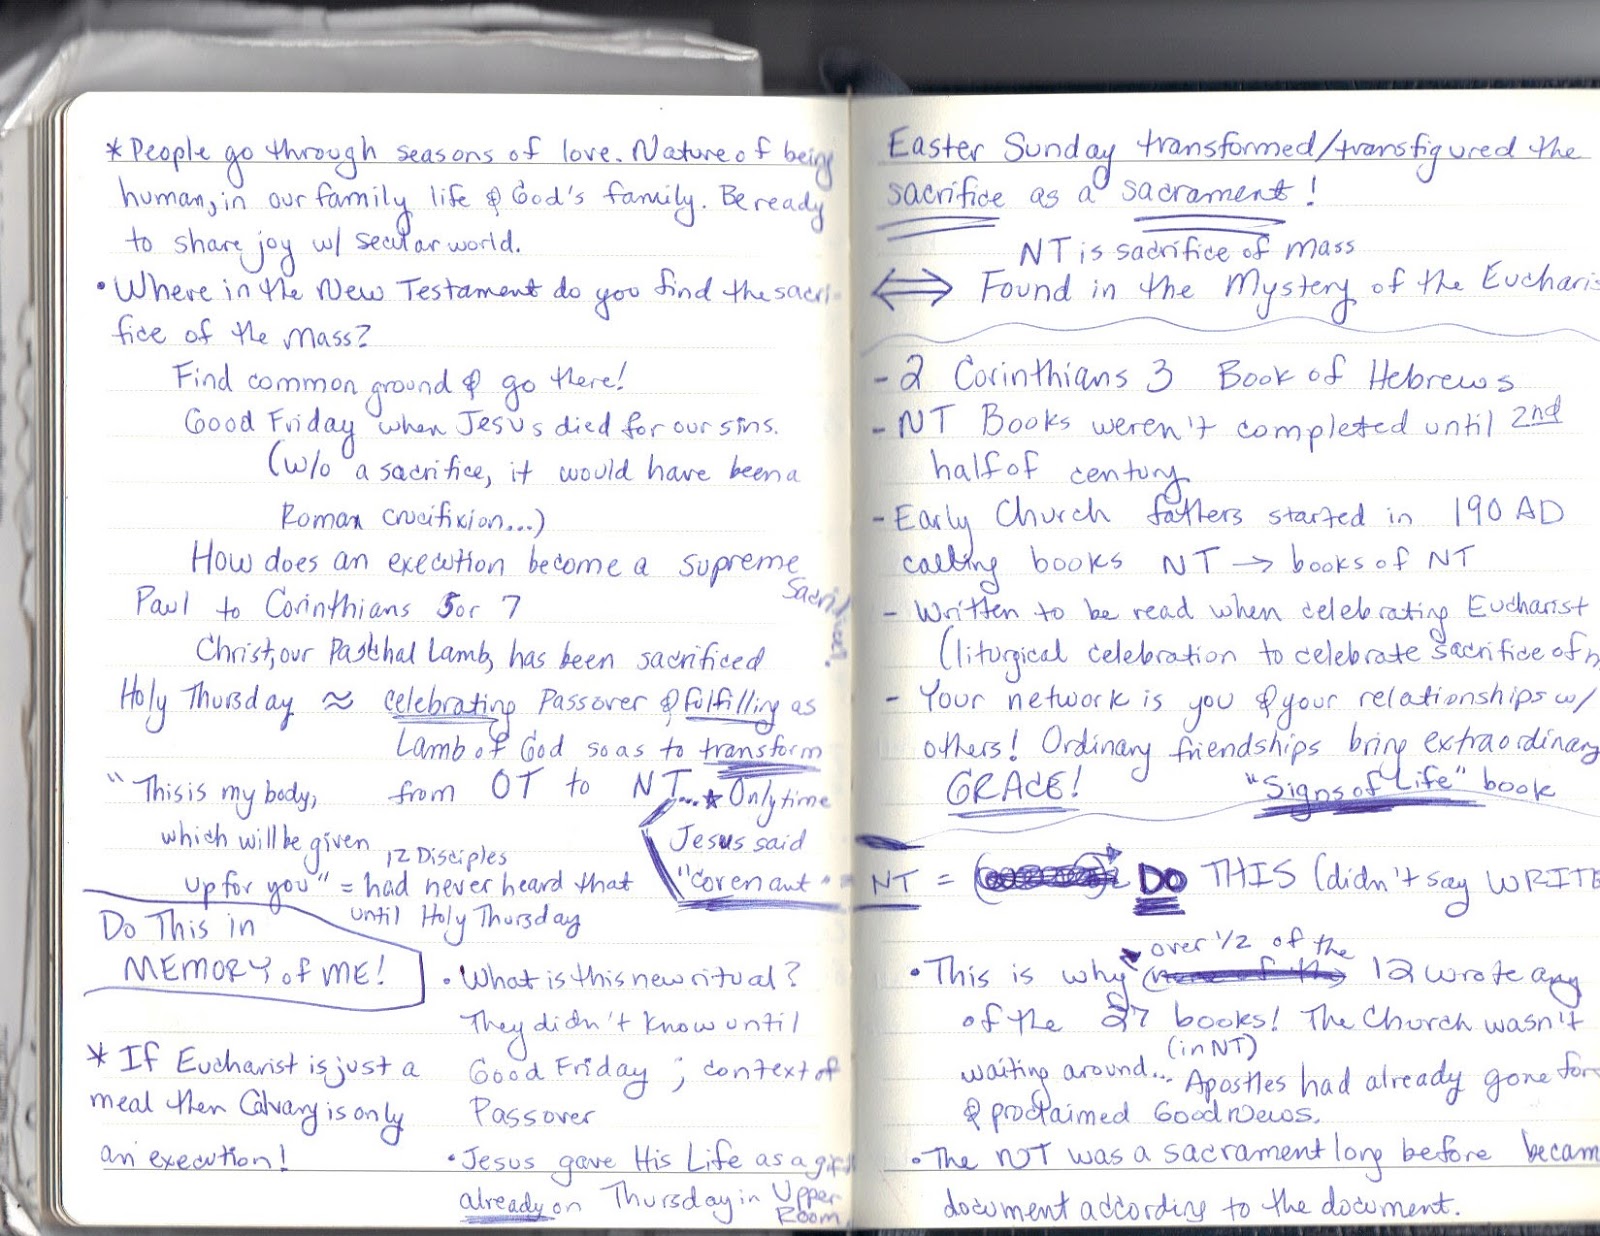 * People go through seasons of love. Nature of being
human, in our family life & God's family. Be ready
to share joy w/ secular world.
• Where in the New Testament do you find the sacri-
fice of the Mass?
Find common ground & go there!
Good Friday when Jesus died for our sins.
(w/o a sacrifice, it would have been a
Roman crucifixion...)
How does an execution become a supreme
sacrifice?
Paul to Corinthians 5 or 7
Christ, our Paschal Lamb, has been sacrificed
Holy Thursday ≈ celebrating Passover & fulfilling as
Lamb of God so as to transform
from OT to NT...
"This is my body,
which will be given
up for you" = 12 Disciples
had never heard that
until Holy Thursday
* Only time
Jesus said
"covenant" =
Do This in
MEMORY of ME!
• What is this new ritual?
They didn't know until
Good Friday; context of
Passover
• Jesus gave His Life as a gift
already on Thursday in Upper
Room
* If Eucharist is just a
meal then Calvary is only
an execution!
Easter Sunday transformed/transfigured the
sacrifice as a sacrament!
NT is sacrifice of mass
⟺ Found in the Mystery of the Eucharis
- 2 Corinthians 3 Book of Hebrews
- NT Books weren't completed until 2nd
half of century
- Early Church fathers started in 190 AD
calling books NT → books of NT
- Written to be read when celebrating Eucharist
(liturgical celebration to celebrate sacrifice of
- Your network is you & your relationships w/
others! Ordinary friendships bring extraordinary
GRACE! "Signs of Life" book
NT = DO THIS (didn't say WRITE
• This is why over 1/2 of the 12 wrote any
of the 27 books! The Church wasn't
(in NT)
waiting around... Apostles had already gone for
& proclaimed Good News.
• The NT was a sacrament long before becam
document according to the document.